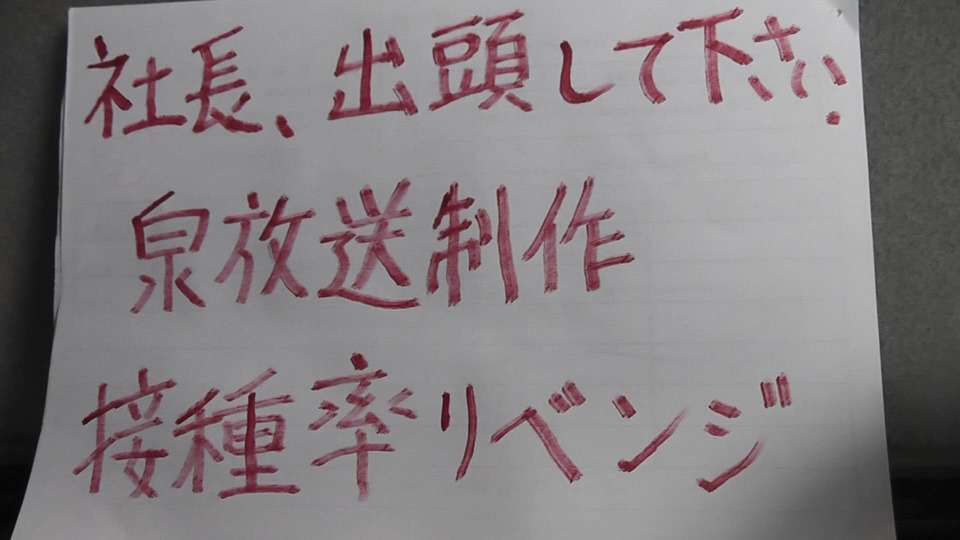 社長、出頭して下さい.
泉放送制作
接種率リベンジ